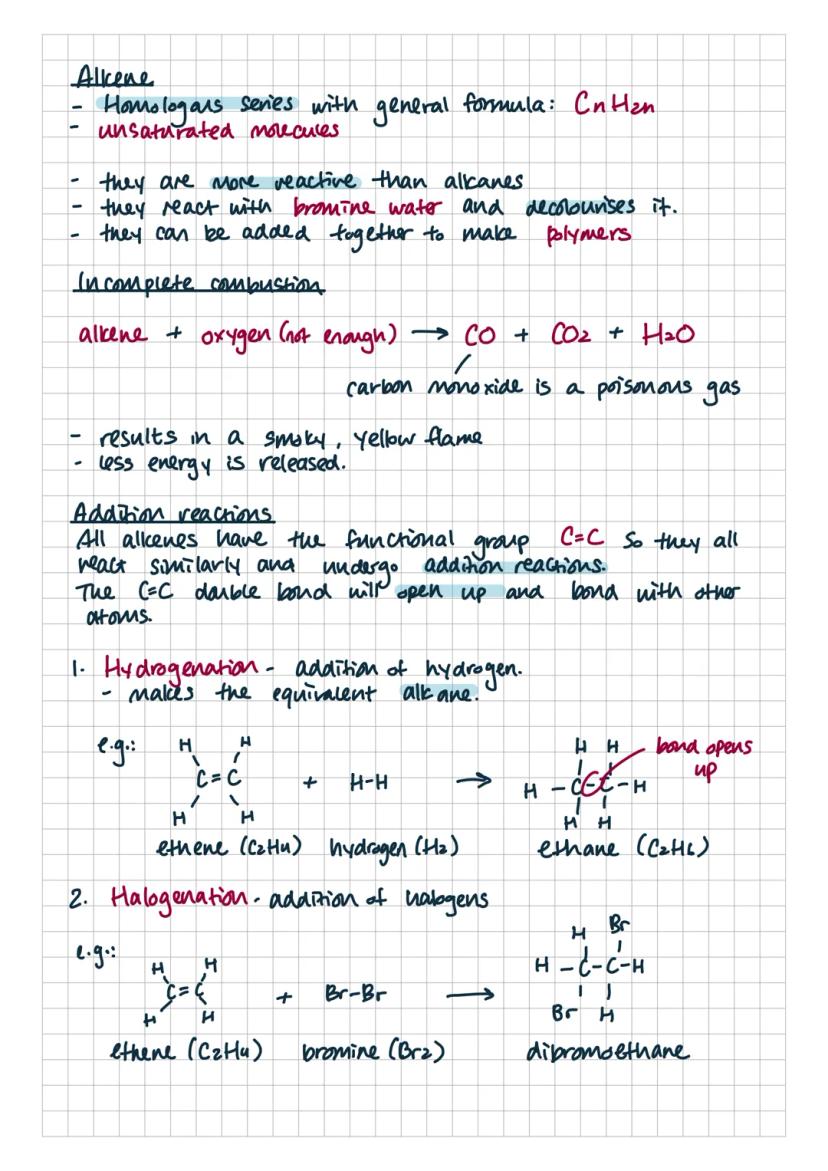 Alkene
- Homologous series with general formula: CnH2n
- unsaturated molecules
- they are more reactive than alkanes
- they react with bromine water and decolourises it.
- they can be added together to make polymers
Incomplete combustion
alkene + oxygen (not enough) → CO + CO2 + H2O
carbon monoxide is a poisonous gas
- results in a smoky, yellow flame
- less energy is released.
Addition reactions
All alkenes have the functional group C=C so they all
react similarly and undergo addition reactions.
The C=C double bond will open up and bond with other
atoms.
1. Hydrogenation - addition of hydrogen.
- makes the equivalent alkane.
e.g.: H H H H bond opens
C=C + H-H → H-C-C-H up
H H H H
ethene (C2H4) hydrogen (H2) ethane (C2H6)
2. Halogenation - addition of halogens
e.g.: H H H Br
C=C + Br-Br → H-C-C-H
H H Br H
ethene (C2H4) bromine (Br2) dibromoethane